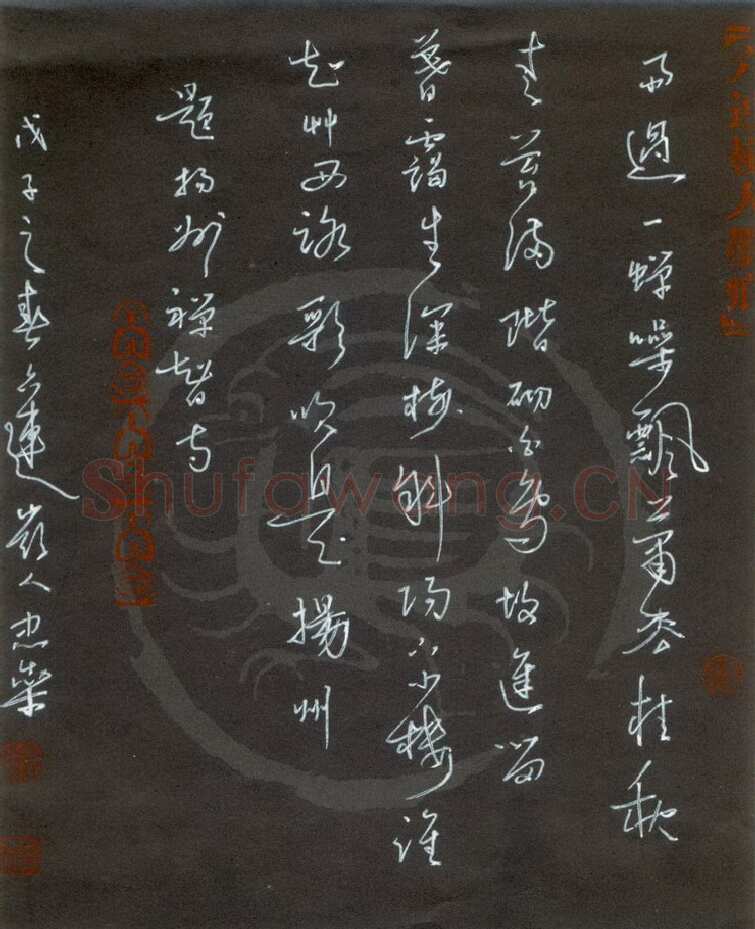 雨過一蟬噪飄蕭枩桂秋
青苔滿階砌白鳥故遲留
暮靄生深樹斜陽下小樓誰
知竹西路歌吹是揚州
題揚州禪智寺
戊子之春人忠樂
Shufawang.CN